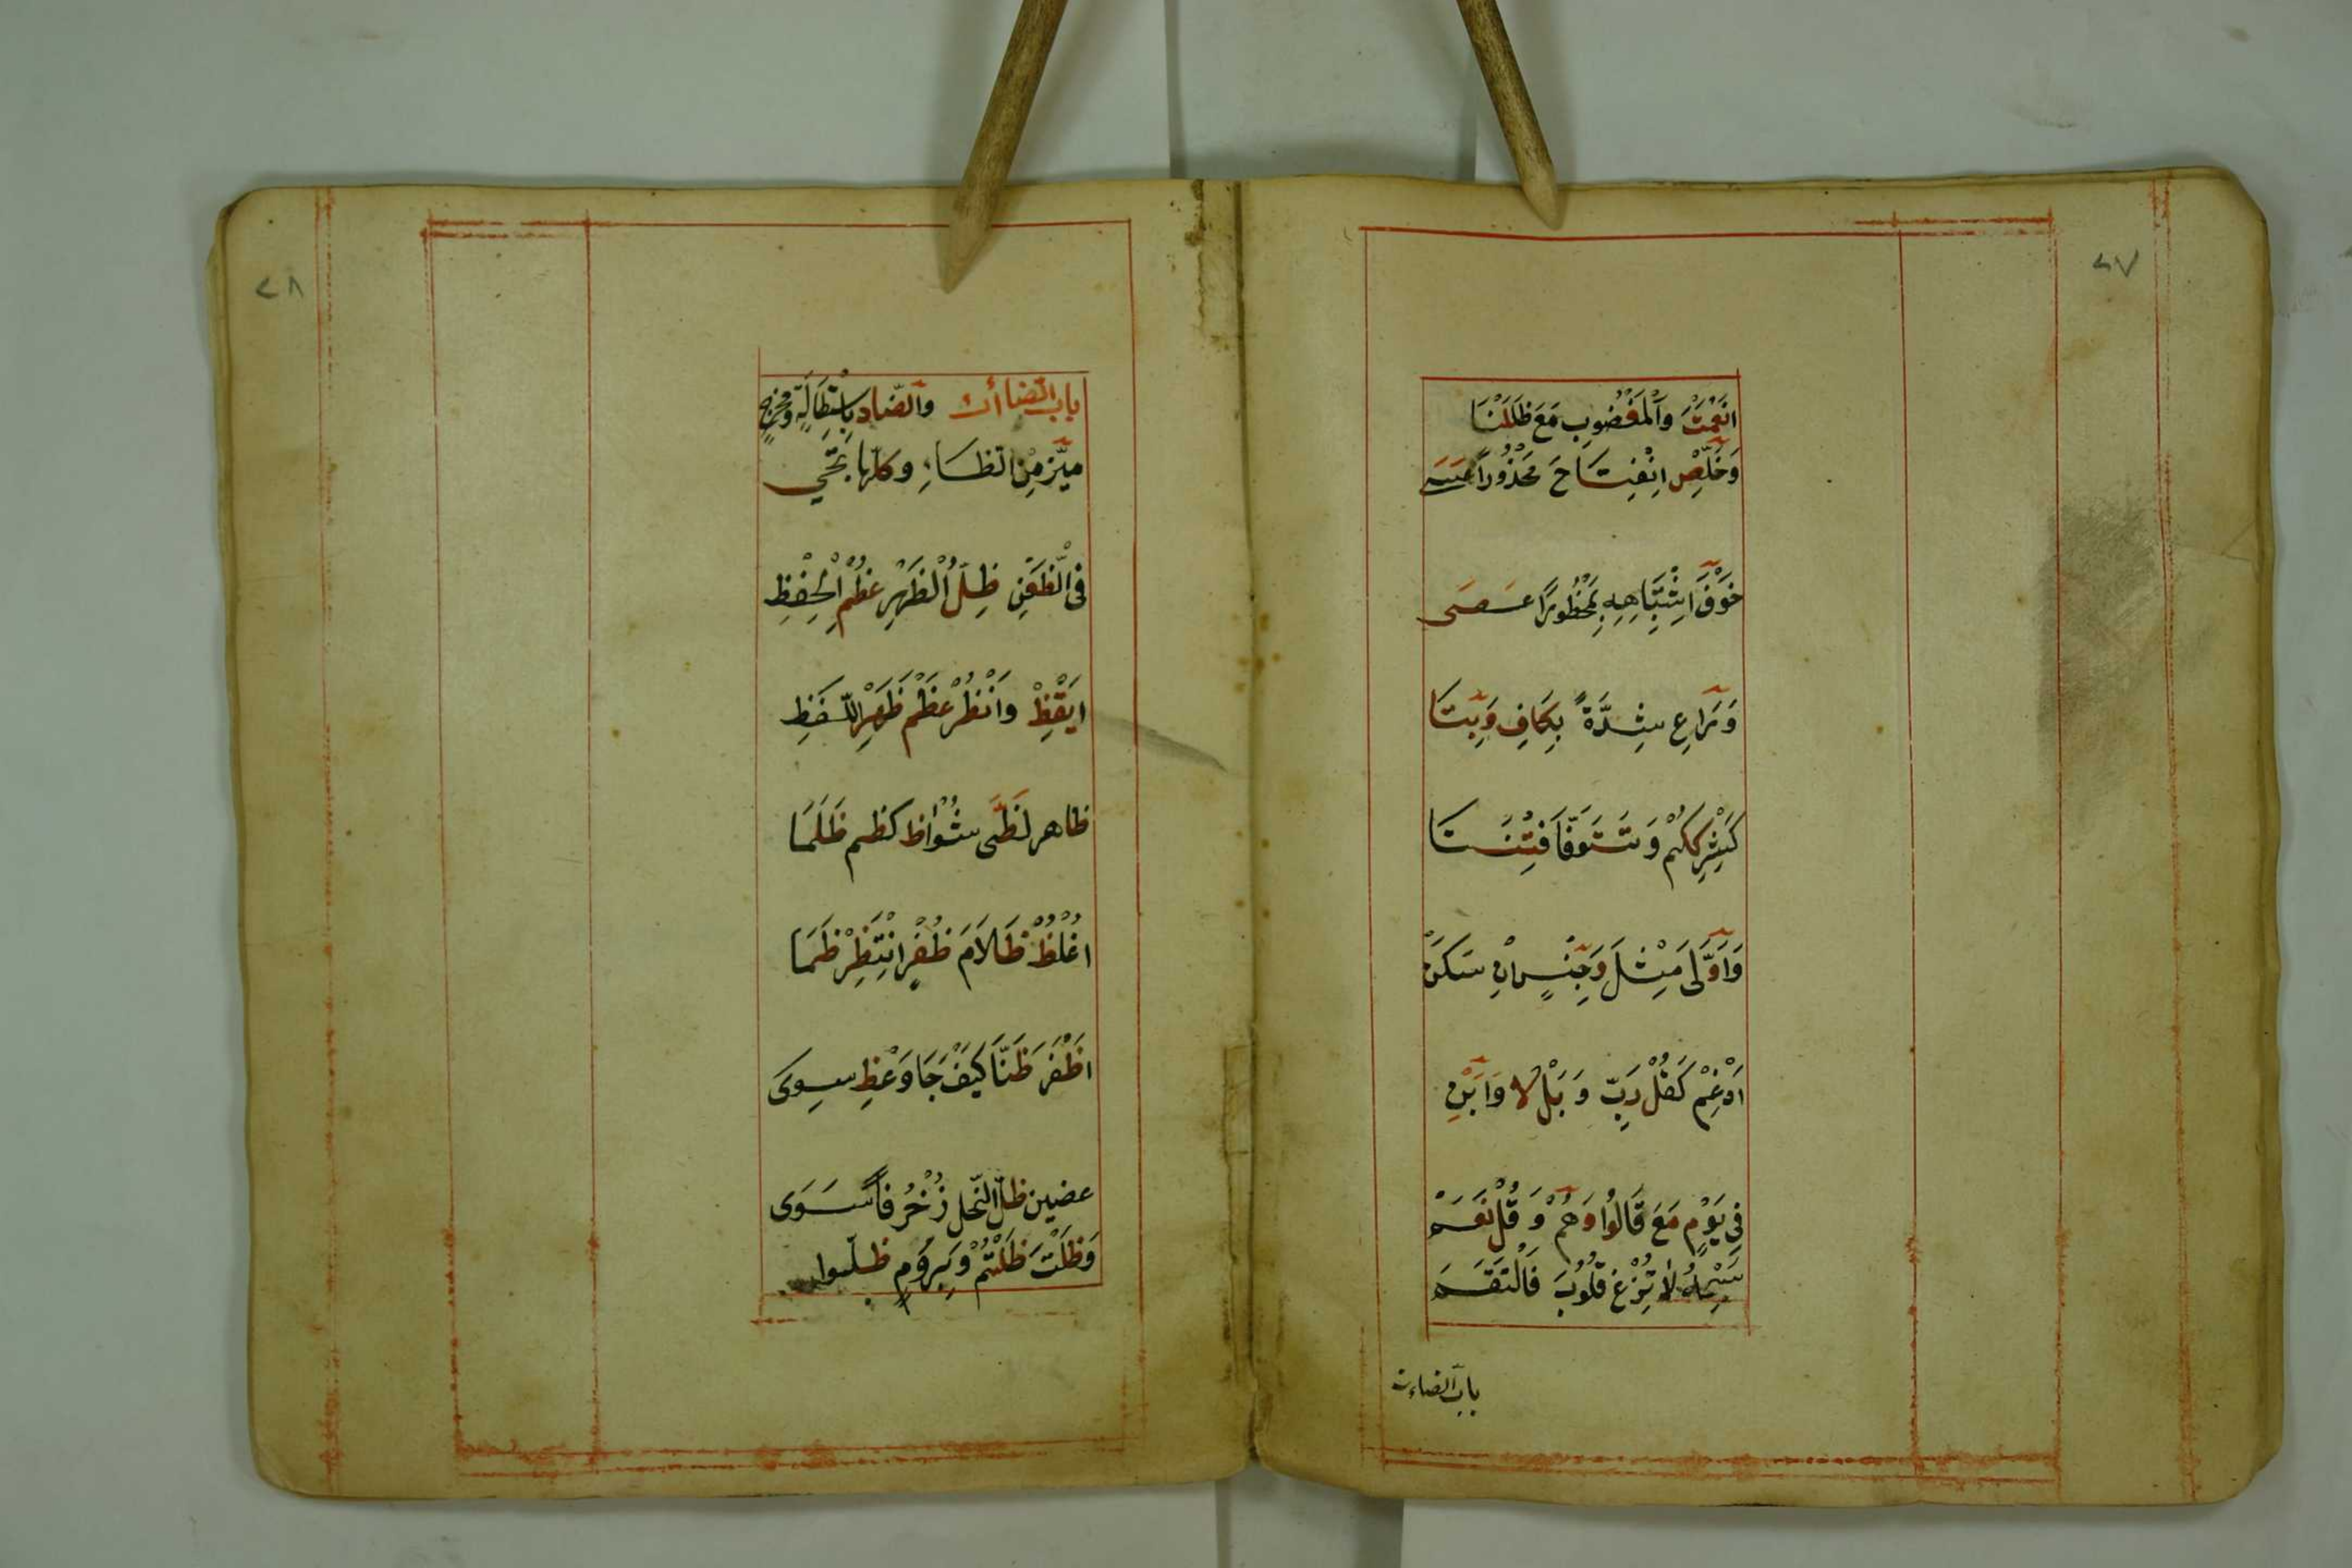 ٢٧
انْعَمْتَ وَالْمَغْضُوبِ مَعَ ظَلَلْنَا
وَخَلِّصِ انْفِتَاحَ مَحْذُورًا عَسَى
خَوْفَ اشْتِبَاهِهِ بِمَحْظُورًا عَصَى
وَرَاعِ شِدَّةً بِكَافٍ وَبِتَا
كَشِرْكِكُمْ وَتَتَوَفَّا فِتْنَتَا
وَاَوَّلَى مِثْلَ وَجِنْسٍ اِنْ سَكَنْ
اَدْغِمْ كَقُلْ رَبِّ وَبَلْ لا وَاَبِنْ
فِى يَوْمٍ مَعَ قَالُوا وَهُمْ وَ قُلْ نَعَمْ
سَبِّحْهُ لَا تُزِغْ قُلُوبَ فَالْتَقَمَ
باب الضاءت
٢٨
باب الضاأت وَالضَّادِ بِاسْتِطَالَةٍ وَمَخْرَجٍ
مَيِّزْ مِنَ الظَاءِ وَكُلّهَا تَجِى
فِى الظَّعْنِ ظِلُّ الْظَهْرِ عُظْمُ اْلحِفْظِ
اَيْقِظْ وَاَنْظُرْ عَظْمَ ظَهْرِ اللَّفظِ
ظاهر لَظَى شُوَاظ كظم ظَلَمَا
اُغْلُظْ ظَلَامَ ظُفْرٍ انْتَظِرْ ظَمَا
اَظْفَرَ ظَنّاً كَيْفَ جَا وَعْظِ سِوَى
عضين ظلّ النّحل زُخْرُفاً سَوَى
وَظَلْتَ ظَلْتُمْ وَبِرُومٍ ظلّوا